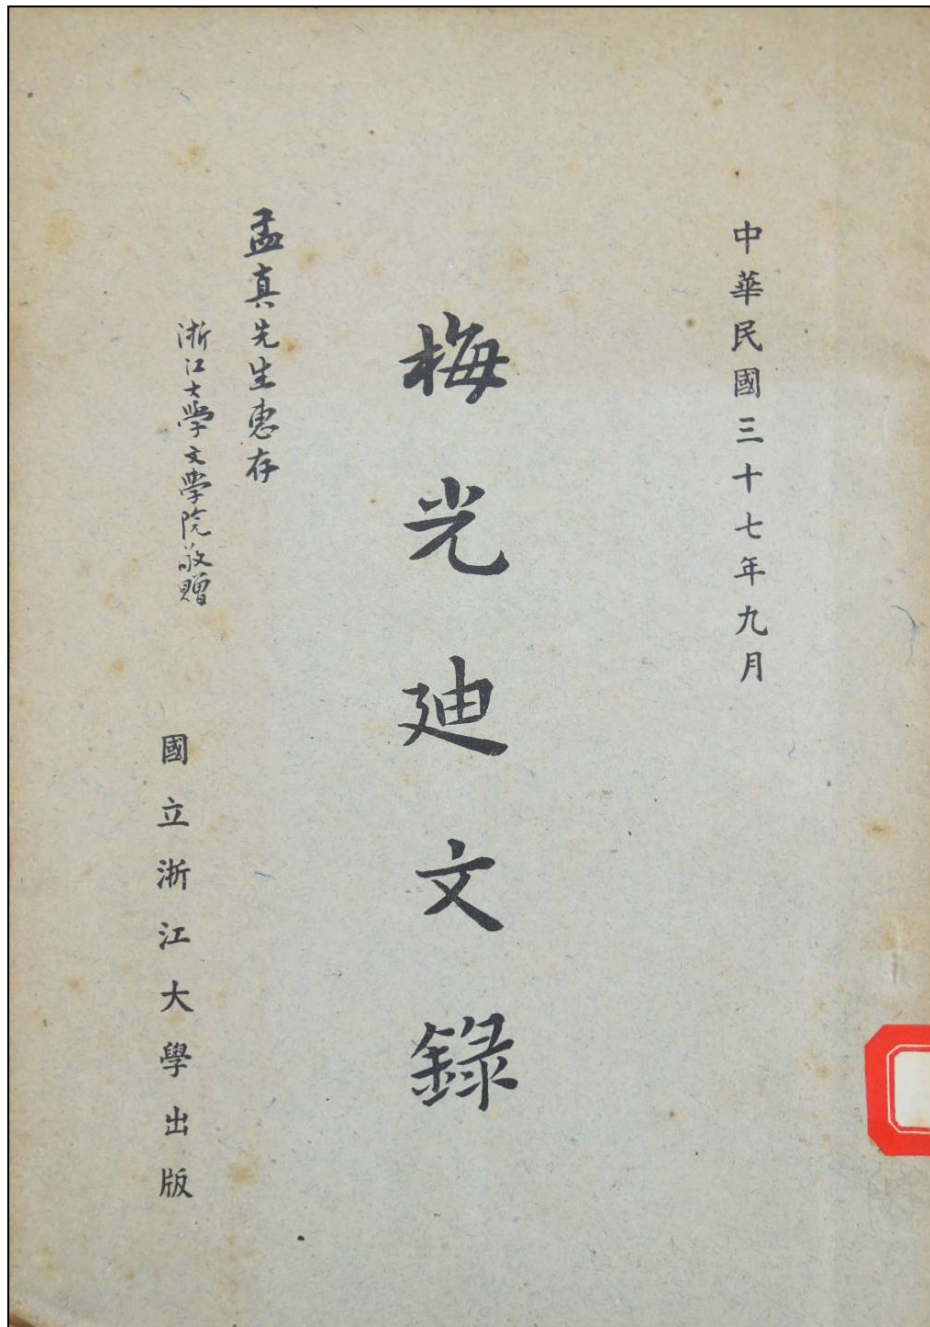 中華民國三十七年九月
梅光迪文錄
孟真先生惠存
浙江大學文學院敬贈
國立浙江大學出版